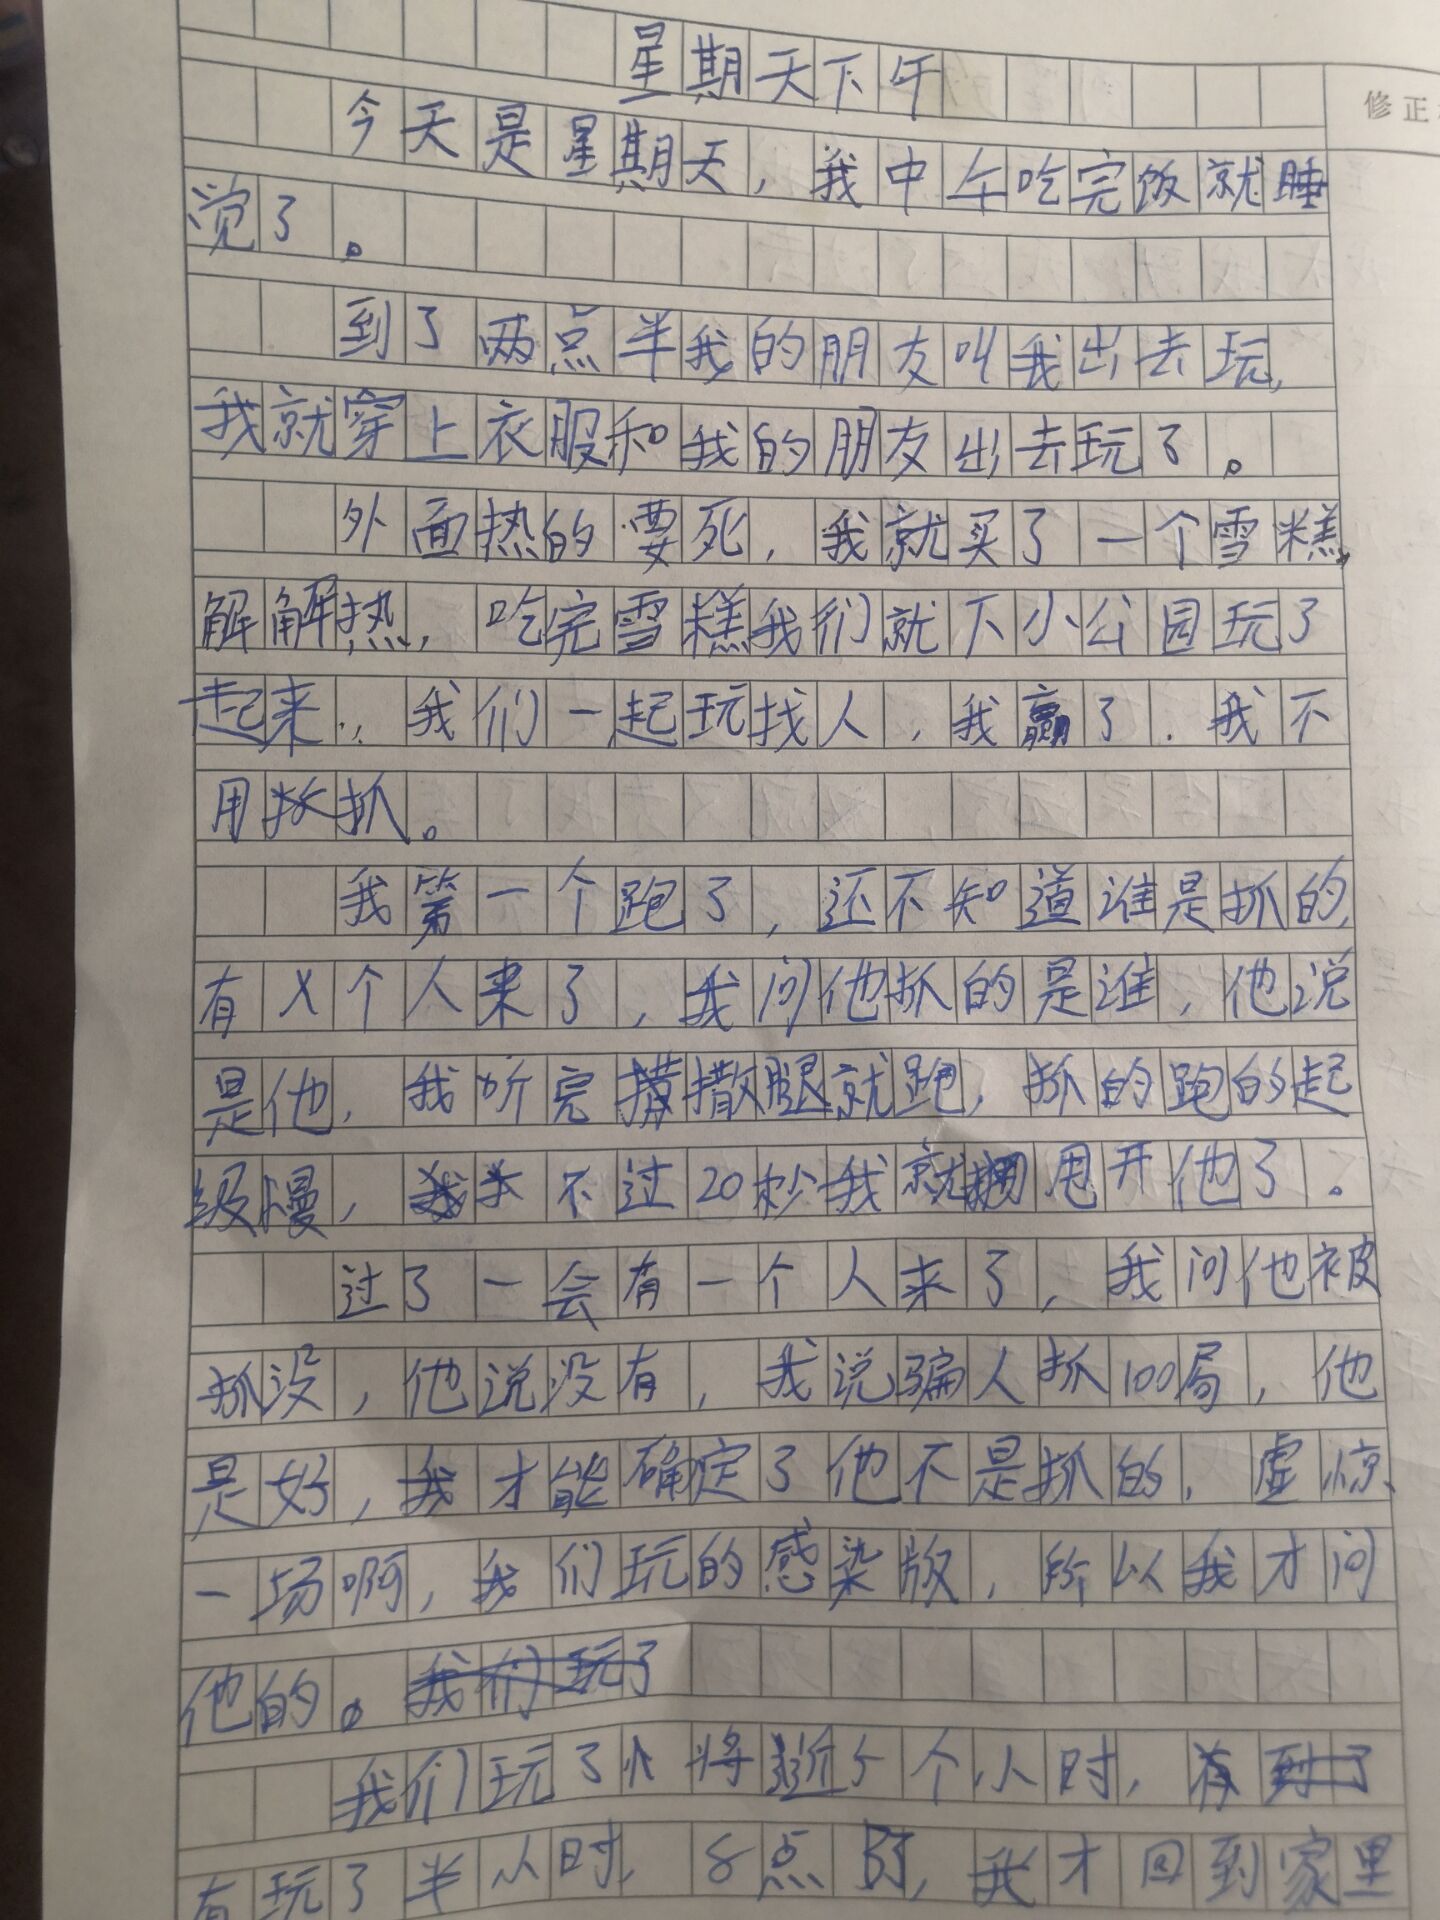 星期天下午
修正
今天是星期天，我中午吃完饭就睡
觉了。
到了两点半我的朋友叫我出去玩，
我就穿上衣服和我的朋友出去玩了。
外面热的要死，我就买了一个雪糕，
解解热，吃完雪糕我们就下小公园玩了
起来，我们一起玩找人，我赢了，我不
用抓。
我第一个跑了，还不知道谁是抓的，
有个人来了，我问他抓的是谁，他说
是他，我听完撒腿就跑，抓的跑的起
级慢，不过20秒我就甩开他了。
过了一会有一个人来了，我问他被
抓没，他说没有，我说骗人抓100局，他
是好，我才能确定了他不是抓的，虚惊
一场啊，我们玩的感染版，所以我才问
他的。我们玩了
我们玩了将近5个小时，到了
有玩了半小时，8点了，我才回到家里